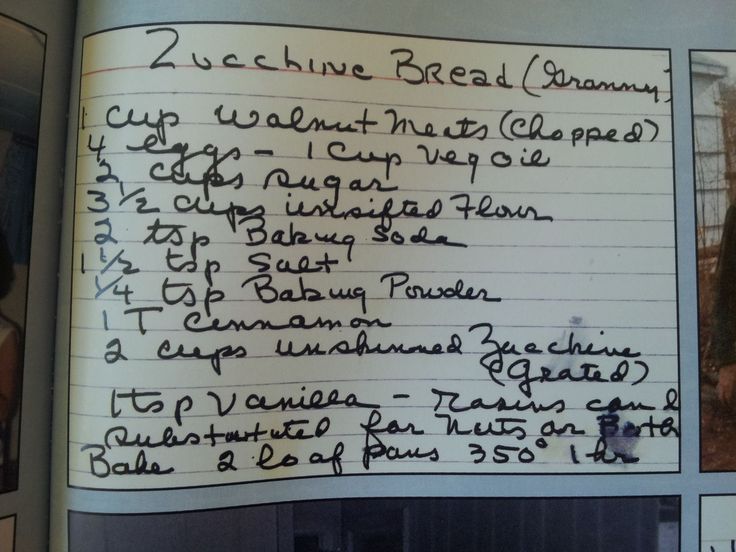 Zucchine Bread (Granny)
1 cup walnut meats (chopped)
4 eggs - 1 cup veg oil
2 cups sugar
3 1/2 cups unsifted Flour
2 tsp Baking Soda
1 1/2 tsp Salt
1/4 tsp Baking Powder
1 T cinnamon
2 cups unskinned Zucchine
(Grated)
1 tsp vanilla - rasins can b
substatuted for nuts or Both
Bake 2 loaf pans 350° 1 hr